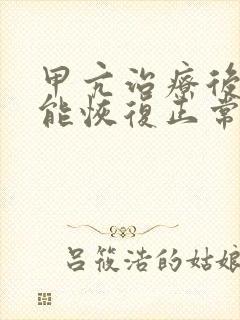 甲亢治療後
能恢復正常
吕筱浩的姑娘